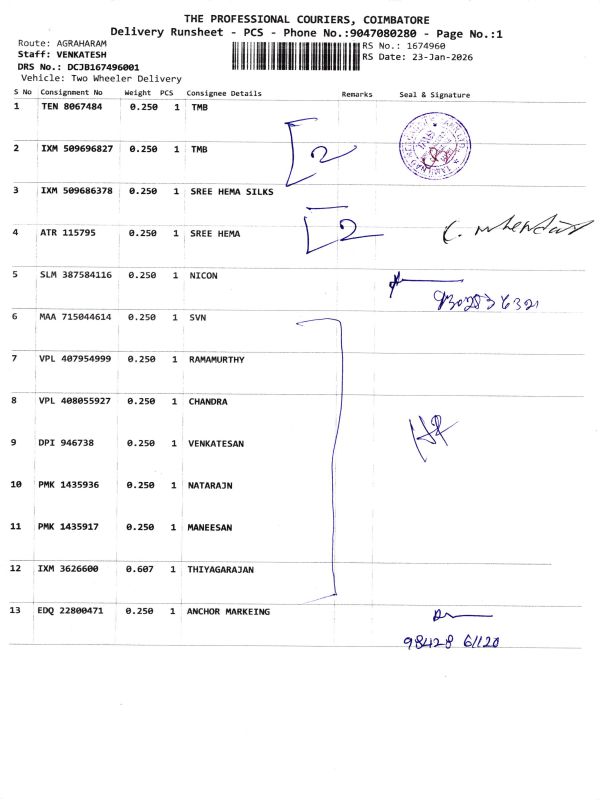 THE PROFESSIONAL COURIERS, COIMBATORE
Delivery Runsheet - PCS - Phone No.:9047080280 - Page No.:1
Route: AGRAHARAM
Staff: VENKATESH
DRS No.: DCJB167496001
Vehicle: Two Wheeler Delivery
RS No.: 1674960
RS Date: 23-Jan-2026
S No Consignment No Weight PCS Consignee Details Remarks Seal & Signature
1 TEN 8067484 0.250 1 TMB
2 IXM 509696827 0.250 1 TMB
2
3 IXM 509686378 0.250 1 SREE HEMA SILKS
4 ATR 115795 0.250 1 SREE HEMA
2
5 SLM 387584116 0.250 1 NICON
6 MAA 715044614 0.250 1 SVN
7 VPL 407954999 0.250 1 RAMAMURTHY
8 VPL 408055927 0.250 1 CHANDRA
9 DPI 946738 0.250 1 VENKATESAN
10 PMK 1435936 0.250 1 NATARAJN
11 PMK 1435917 0.250 1 MANEESAN
12 IXM 3626600 0.607 1 THIYAGARAJAN
13 EDQ 22800471 0.250 1 ANCHOR MARKEING
98428 61120